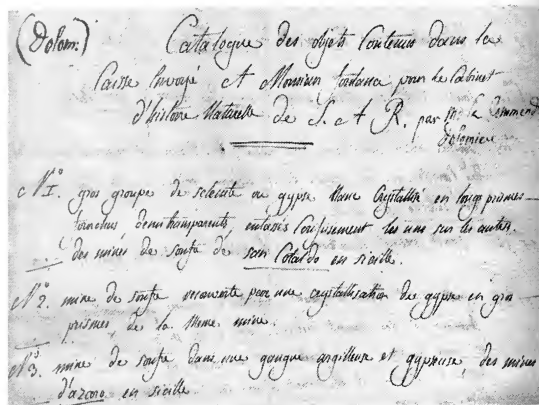 (Dolom:)
Catalogue des objets Contenus dans la
Caisse Envoyé A Monsieur fontana pour le Cabinet
d'histoire Naturelle de S. A R. par Mr le Command
Dolomieu
N° 1. gros groupe de selenite ou gypse blanc Crystallisé en longs prismes
demitransparents, entassés Confusement les uns sur les autres.
des mines de soufre de san Cataldo en sicille.
N° 2. mine de soufre recouverte par une crystallisation de gypse en gros
prismes, de la Meme mine.
N° 3. mine de soufre dans une gangue argilleuse et gypseuse, des mines
d'azaro en sicille.